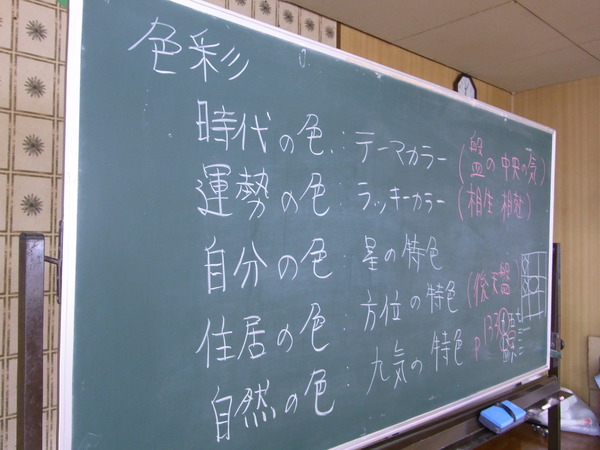 色彩
時代の色：テーマカラー（盤の中央の気）
運勢の色：ラッキーカラー（相生 相剋）
自分の色：星の特色
住居の色：方位の特色（後天盤）
自然の色：九気の特色 P133